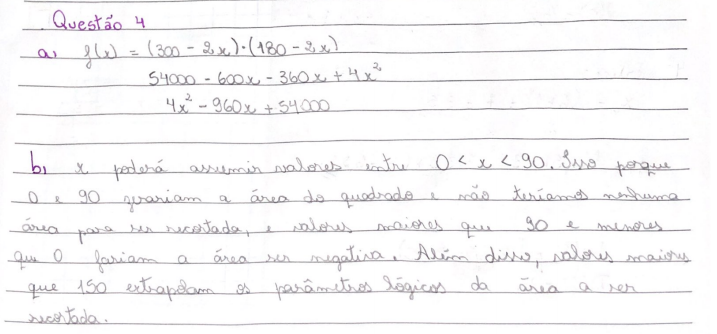 Questão 4
a) f(x) = (300 - 2x)·(180 - 2x)
54000 - 600x - 360x + 4x²
4x² - 960x + 54000
b) x poderá assumir valores entre 0 < x < 90. Isso porque
0 e 90 zerariam a área do quadrado e não teríamos nenhuma
área para ser recortada, e valores maiores que 90 e menores
que 0 fariam a área ser negativa. Além disso, valores maiores
que 150 extrapolam os parâmetros lógicos da área a ser
recortada.